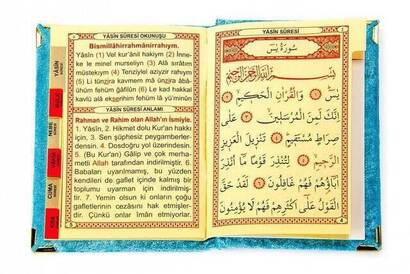 YÂSÎN SÛRESİ OKUNUŞU
Bismillâhirrahmânirrahıym.
Yâsîn (1) Vel kur'ânil hakiym (2) İnne-
ke le minel murseliyn (3) Alâ sırâtım
müstekıym (4) Tenziylel aziyzir rahıym
(5) Li tünzira kavmem mâ ünzira âbâ-
ühüm fehüm ğâfilûn (6) Le kad hakkal
kavlü alâ ekserihim fehüm lâ yü'minûn
YÂSÎN SÛRESİ ANLAMI
Rahman ve Rahim olan Allah'ın İsmiyle.
1. Yâsîn, 2. Hikmet dolu Kur'an hakkı
için, 3. Sen şüphesiz peygamberler-
densin. 4. Dosdoğru yol üzerindesin.
5. (Bu Kur'an) Gâlip ve çok merha-
metli Allah tarafından indirilmiştir. 6.
Babaları uyarılmamış, bu yüzden
kendileri de gaflet içinde kalmış bir
toplumu uyarman için indirilmiş-
tir. 7. Yemin olsun ki onların çoğu
gafletlerinin cezasını hak etmişler-
dir. Çünkü onlar îmân etmiyorlar.
YÂSÎN SÛRESİ
سُورَةُ يٰسٓ
بِسْمِ اللّٰهِ الرَّحْمٰنِ الرَّحِيمِ
يٰسٓ ١ وَالْقُرْاٰنِ الْحَكِيمِ ٢
اِنَّكَ لَمِنَ الْمُرْسَلِينَ ٣ عَلٰى
صِرَاطٍ مُسْتَقِيمٍ ٤ تَنْزِيلَ الْعَزِيزِ
الرَّحِيمِ ٥ لِتُنْذِرَ قَوْمًا مَٓا اُنْذِرَ
اٰبَٓاؤُ۬هُمْ فَهُمْ غَافِلُونَ ٦ لَقَدْ حَقَّ
الْقَوْلُ عَلٰٓى اَكْثَرِهِمْ فَهُمْ لَا يُؤْمِنُونَ
YÂSÎN
CUMA